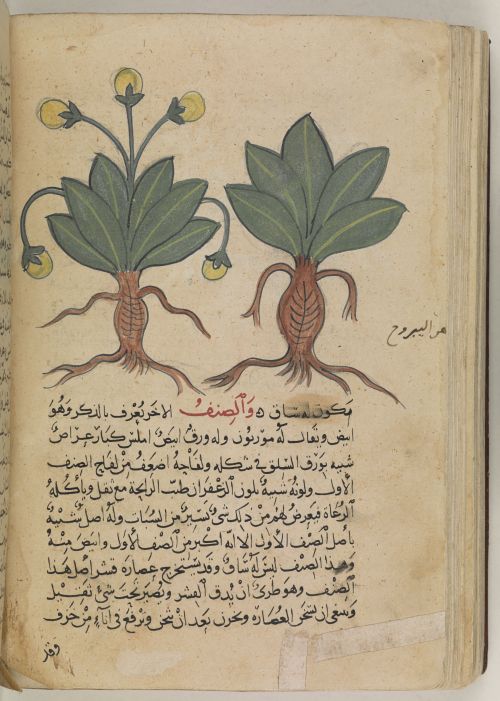 هو اليبروح
يكون له ساق ٥ والصنف الاخر يعرف بالذكر وهو
ابيض ويقال له موريون وله ورق ابيض املس كبار عراض
شبيه بورق السلق في شكله ولفاحه اضعف من لفاح الصنف
الاول ولونه شبيه بلون الزعفران طيب الرايحة مع ثقل وياكله
الرعاة فيعرض لهم من ذلك شئ يسير من السبات وله اصل شبيه
باصل الصنف الاول الا انه اكبر من الصنف الاول وابيض منه
وهذا الصنف ليس له ساق وقد يستخرج عصارة قشر اصل هذا
الصنف وهو طري ان يدق القشر ويصير تحت شئ ثقيل
وينبغي ان يسخن العصاره وتخزن بعد ان تثخن وترفع في اناء من خزف
وقد